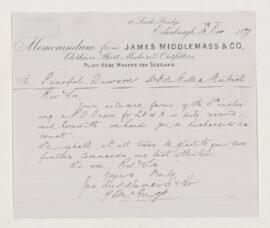 South Bridge
Edinburgh, 1879
Memorandum from JAMES MIDDLEMASS & CO.
Clothiers Shirt Makers & Outfitters.
PULPIT ROBE MAKERS FOR SCOTLAND
To Principal Dawson McGill College Montreal
Revd Sir,
Your esteemed favour of the
P.O. Order for is duly received,
and herewith we hand you a discharged ac
count.
We shall at all times be glad to give your
further commands our best attention.
We are, Revd Sir
Yours truly
Jas Middlemass & Co